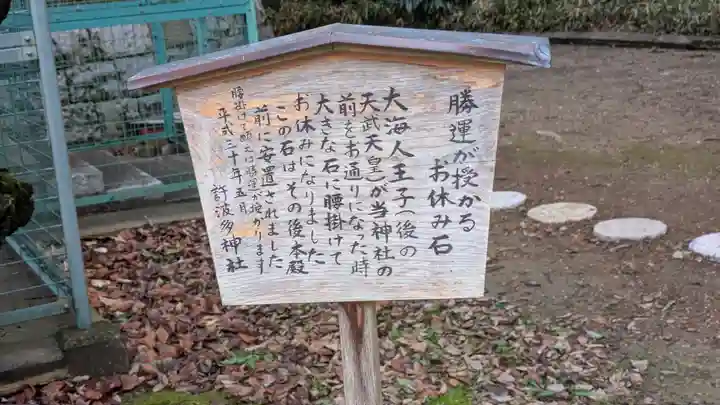 勝運が授かる
お休み石
大海人王子(後の
天武天皇)が当神社の
前をお通りになった時
大きな石に腰掛けて
お休みになりました
この石はその後本殿
前に安置されました
腰掛けて勝運が授かります
平成三十年五月 許波多神社